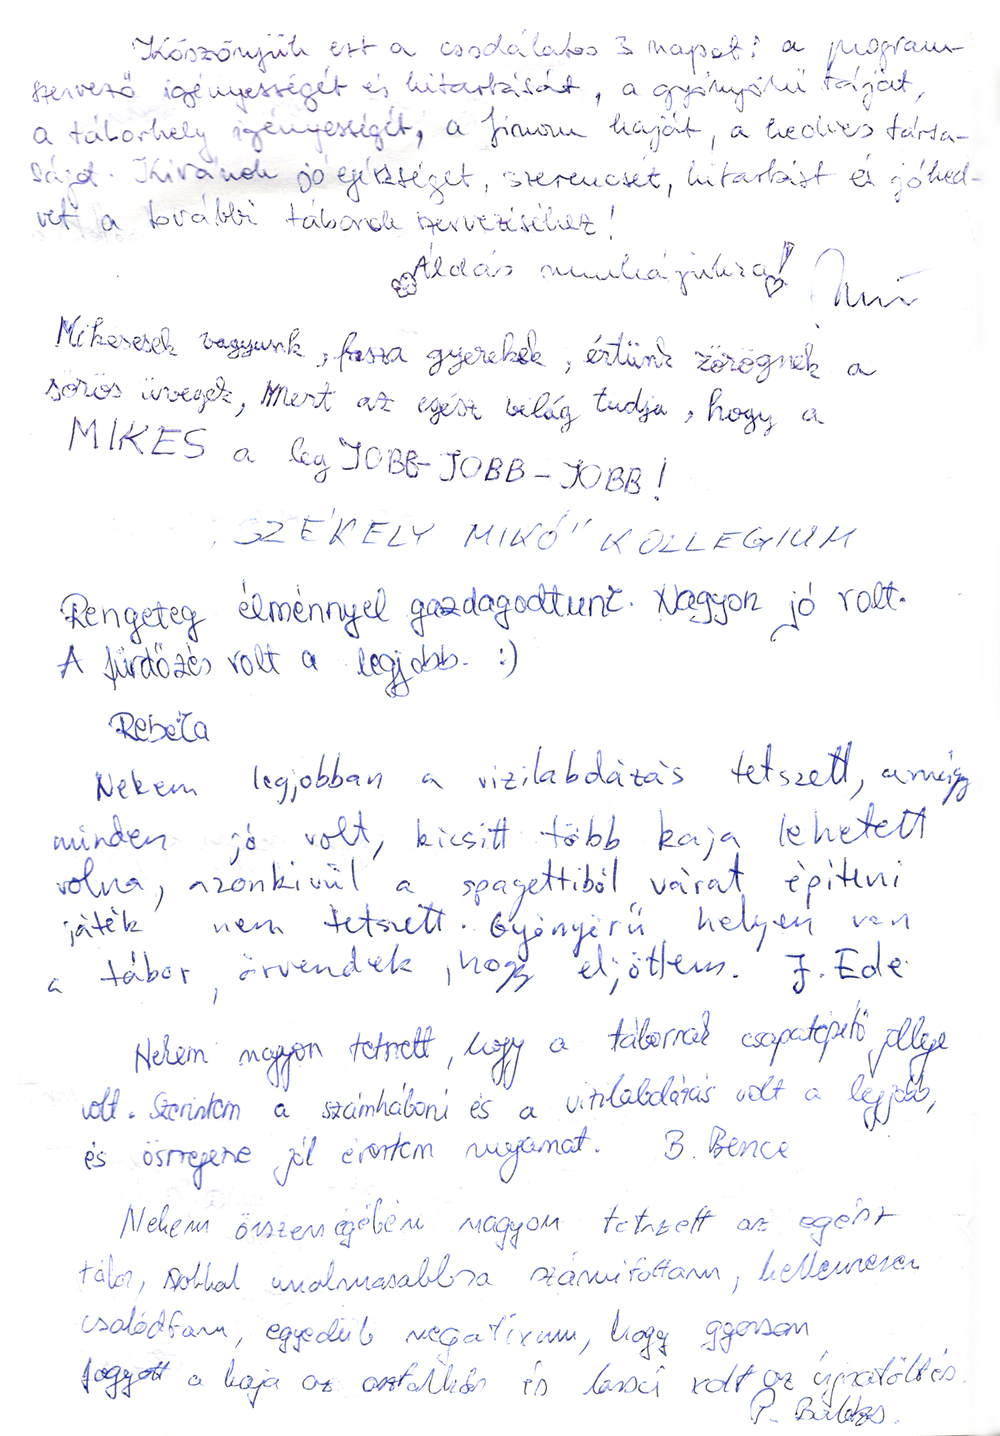 Köszönjük ezt a csodálatos 3 napot: a program-
szervező igényességét és kitartását, a gyönyörű tájat,
a táborhely igényességét, a finom kaját, a kedves társa-
ságot. Kívánok jó egészséget, szerencsét, kitartást és jóked-
vet a további táborok szervezéséhez!
Áldás munkájukra!
Mikesesek vagyunk, fasza gyerekek, értünk zörögnek a
sörös üvegek, Mert az egész világ tudja, hogy a
MIKES a leg JOBB-JOBB-JOBB!
SZÉKELY MIKÓ" KOLLEGIUM
Rengeteg élménnyel gazdagodtunk. Nagyon jó volt.
A fürdőzés volt a legjobb. :)
Rebeka
Nekem legjobban a vizilabdázás tetszett, amúgy
minden jó volt, kicsitt több kaja lehetett
volna, azonkivül a spagettiből várat építeni
játék nem tetszett. Gyönyörű helyen van
a tábor, örvendek, hogy eljöttem. J. Ede
Nekem nagyon tetszett, hogy a tábornak csapatépítő jellege
volt. Szerintem a számháború és a vizilabdázás volt a legjobb,
és összegezve jól éreztem magamat. B. Bence
Nekem összességében nagyon tetszett az egész
tábor, sokkal unalmasabbra számítottam, kellemesen
csalódtam, egyedüli negatívum, hogy gyorsan
fogyott a kaja az asztalkán és lassú volt az újratöltés.
P. Balázs.